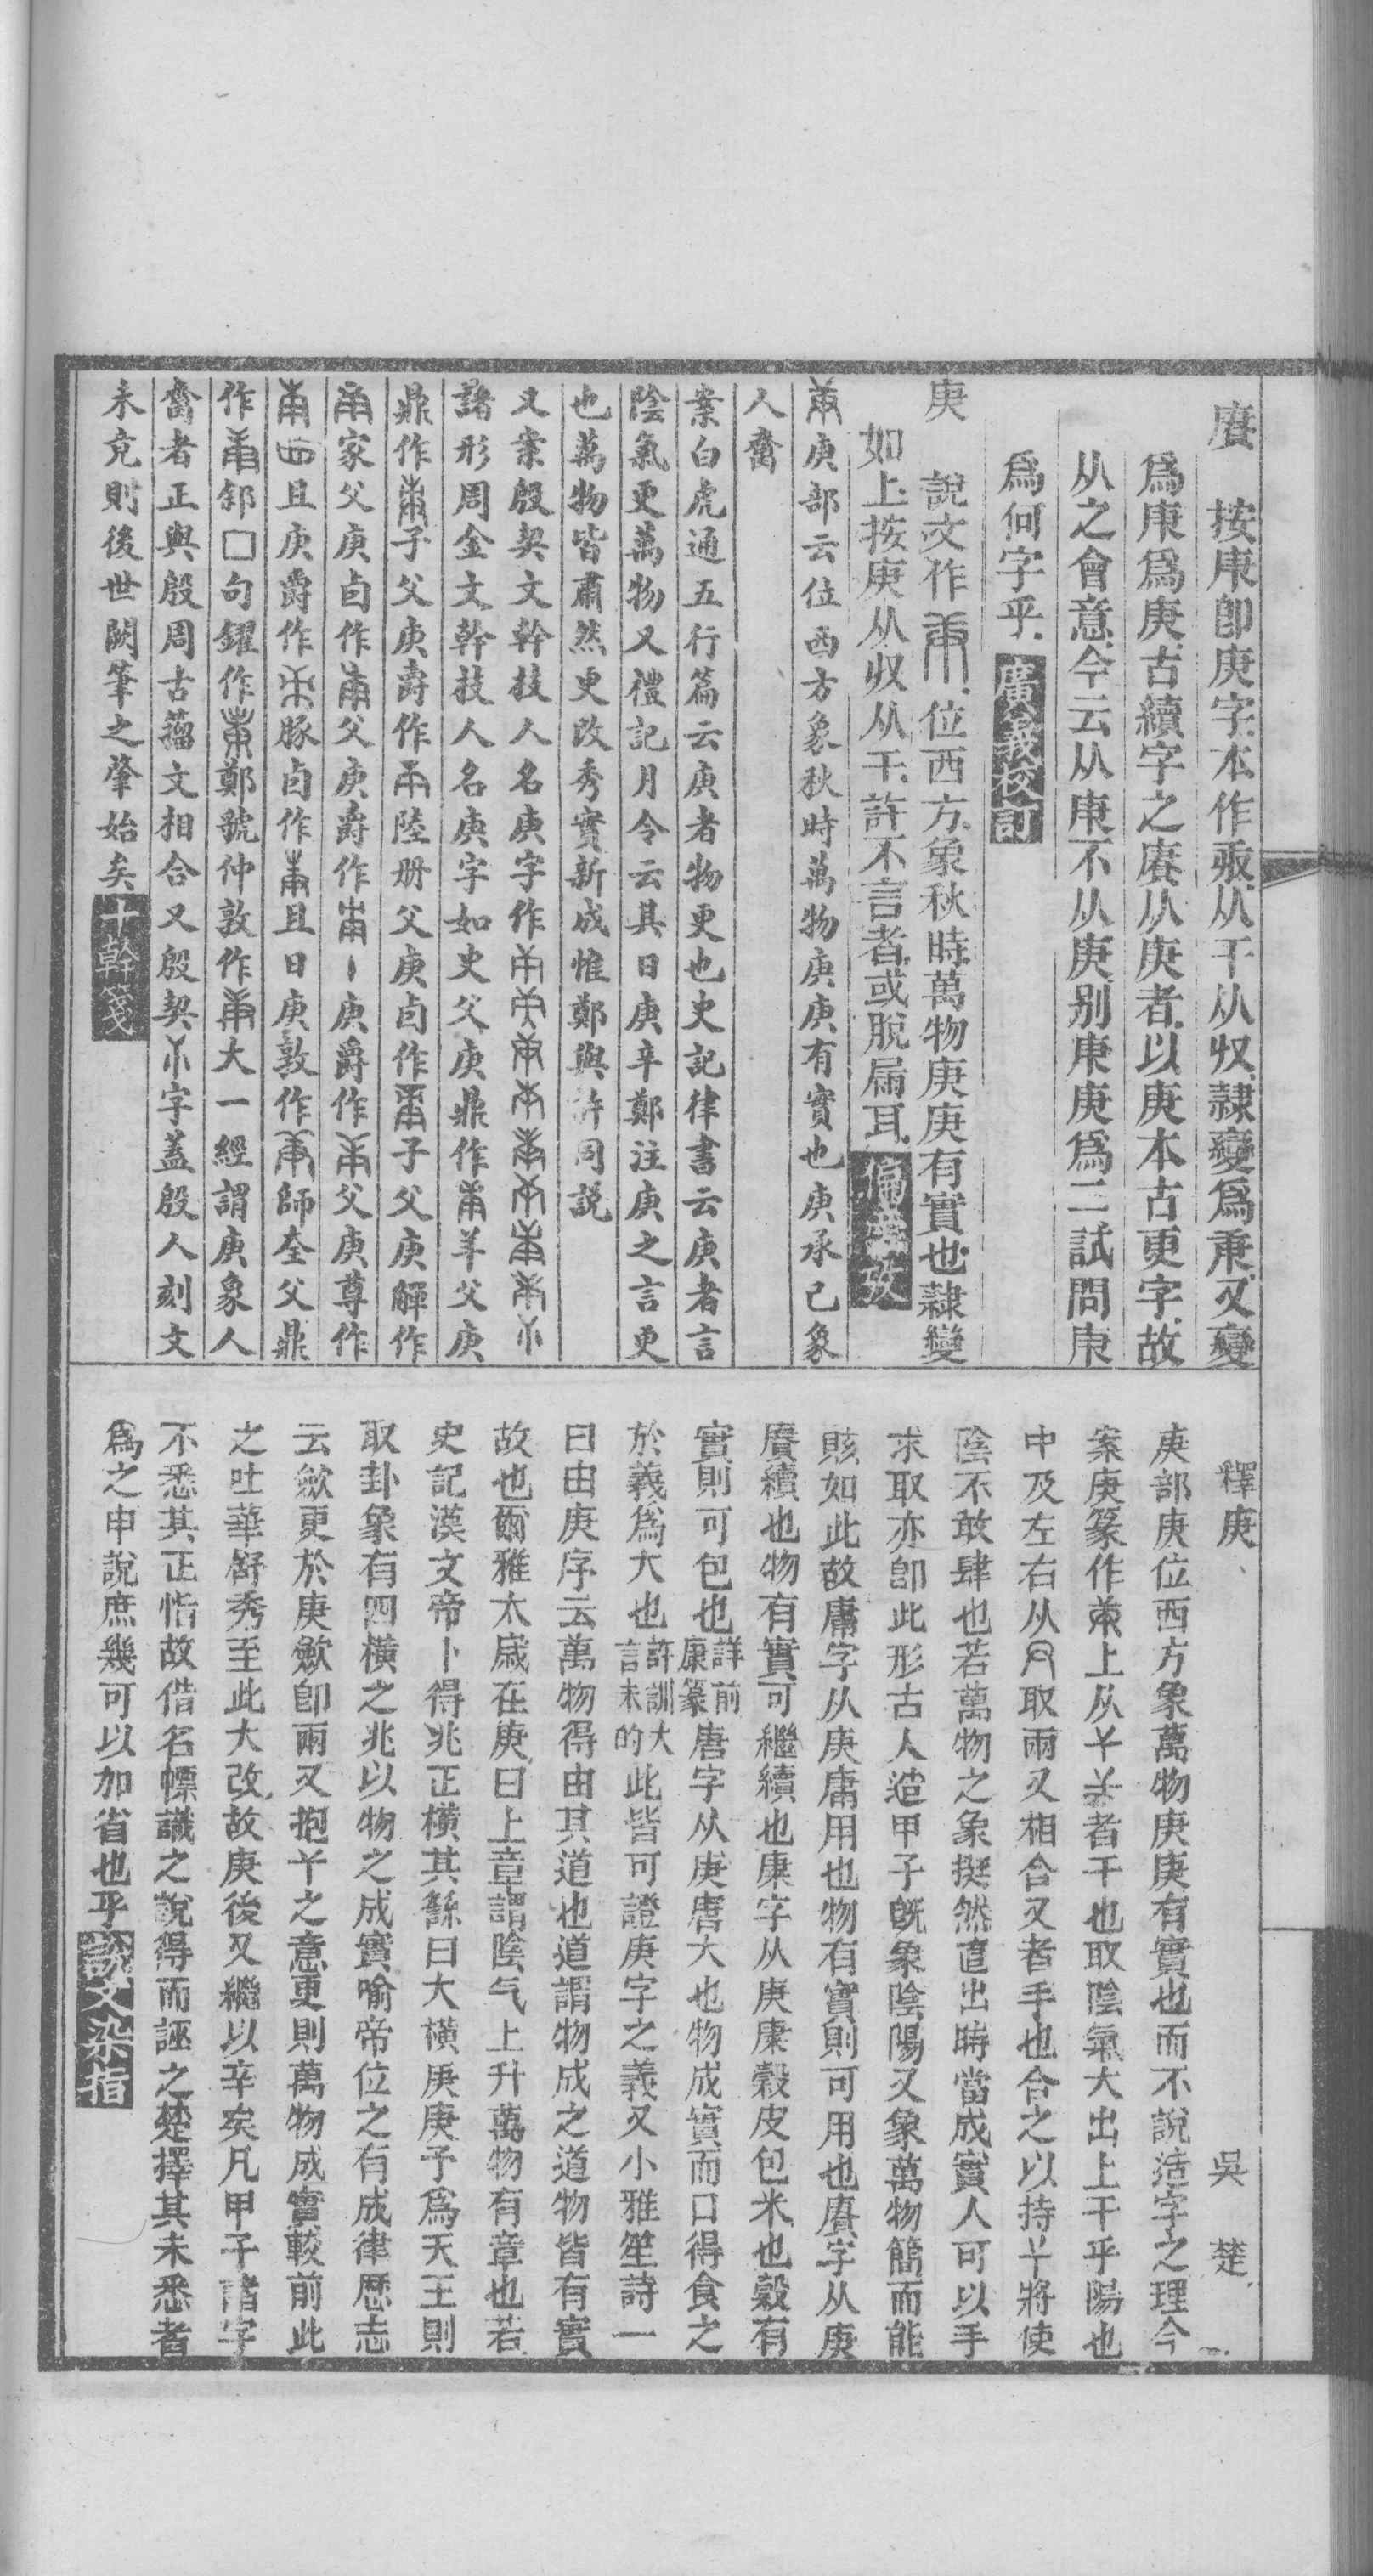 賡　按庚卽庚字本作𢆉从干从収隷變爲𢆉又變
爲庚爲庚古續字之賡从庚者以庚本古更字故
从之會意今云从庚不从庚别庚庚爲二試問庚
爲何字乎廣義校訂
庚　說文作位西方象秋時萬物庚庚有實也隷變
如上按庚从収从干許不言者或脫扁耳
庚部云位西方象秋時萬物庚庚有實也庚承己象
人䐡
案白虎通五行篇云庚者物更也史記律書云庚者言
陰氣更萬物又禮記月令云其日庚辛鄭注庚之言更
也萬物皆肅然更改秀實新成惟鄭與許同説
又案殷契文幹技人名庚字作
諸形周金文幹技人名庚字如史父庚鼎作羊父庚
鼎作子父庚爵作陸册父庚卣作子父庚觶作
家父庚卣作父庚爵作庚爵作父庚尊作
且庚爵作豚卣作且日庚敦作師𡘇父鼎
作郐□句鑃作鄭虢仲敦作大一經謂庚象人
䐡者正與殷周古籀文相合又殷契字蓋殷人刻文
未竞則後世闕筆之肇始矣十幹箋
釋庚　吳楚
庚部庚位西方象萬物庚庚有實也而不說造字之理今
案庚篆作上从者干也取陰氣大出上干乎陽也
中及左右从取兩又相合又者手也合之以持將使
陰不敢肆也若萬物之象挺然直出時當成實人可以手
求取亦卽此形古人造甲子旣象陰陽又象萬物簡而能
賅如此故庸字从庚庸用也物有實則可用也賡字从庚
賡續也物有實可繼續也康字从庚康穀皮包米也穀有
實則可包也詳前康篆唐字从庚唐大也物成實而口得食之
於義爲大也許訓大言未的此皆可證庚字之義又小雅笙詩一
曰由庚序云萬物得由其道也道謂物成之道物皆有實
故也爾雅太歲在庚曰上章謂陰气上升萬物有章也若
史記漢文帝卜得兆正橫其繇曰大橫庚庚予爲天王則
取卦象有四橫之兆以物之成實喻帝位之有成律歷志
云歛更於庚歛卽兩又抱之意更則萬物成實較前此
之吐華舒秀至此大改故庚後又繼以辛矣凡甲子諸字
不悉其正恉故借名幖識之說得而誣之楚擇其未悉者
爲之申說庶幾可以加省也乎說文染指